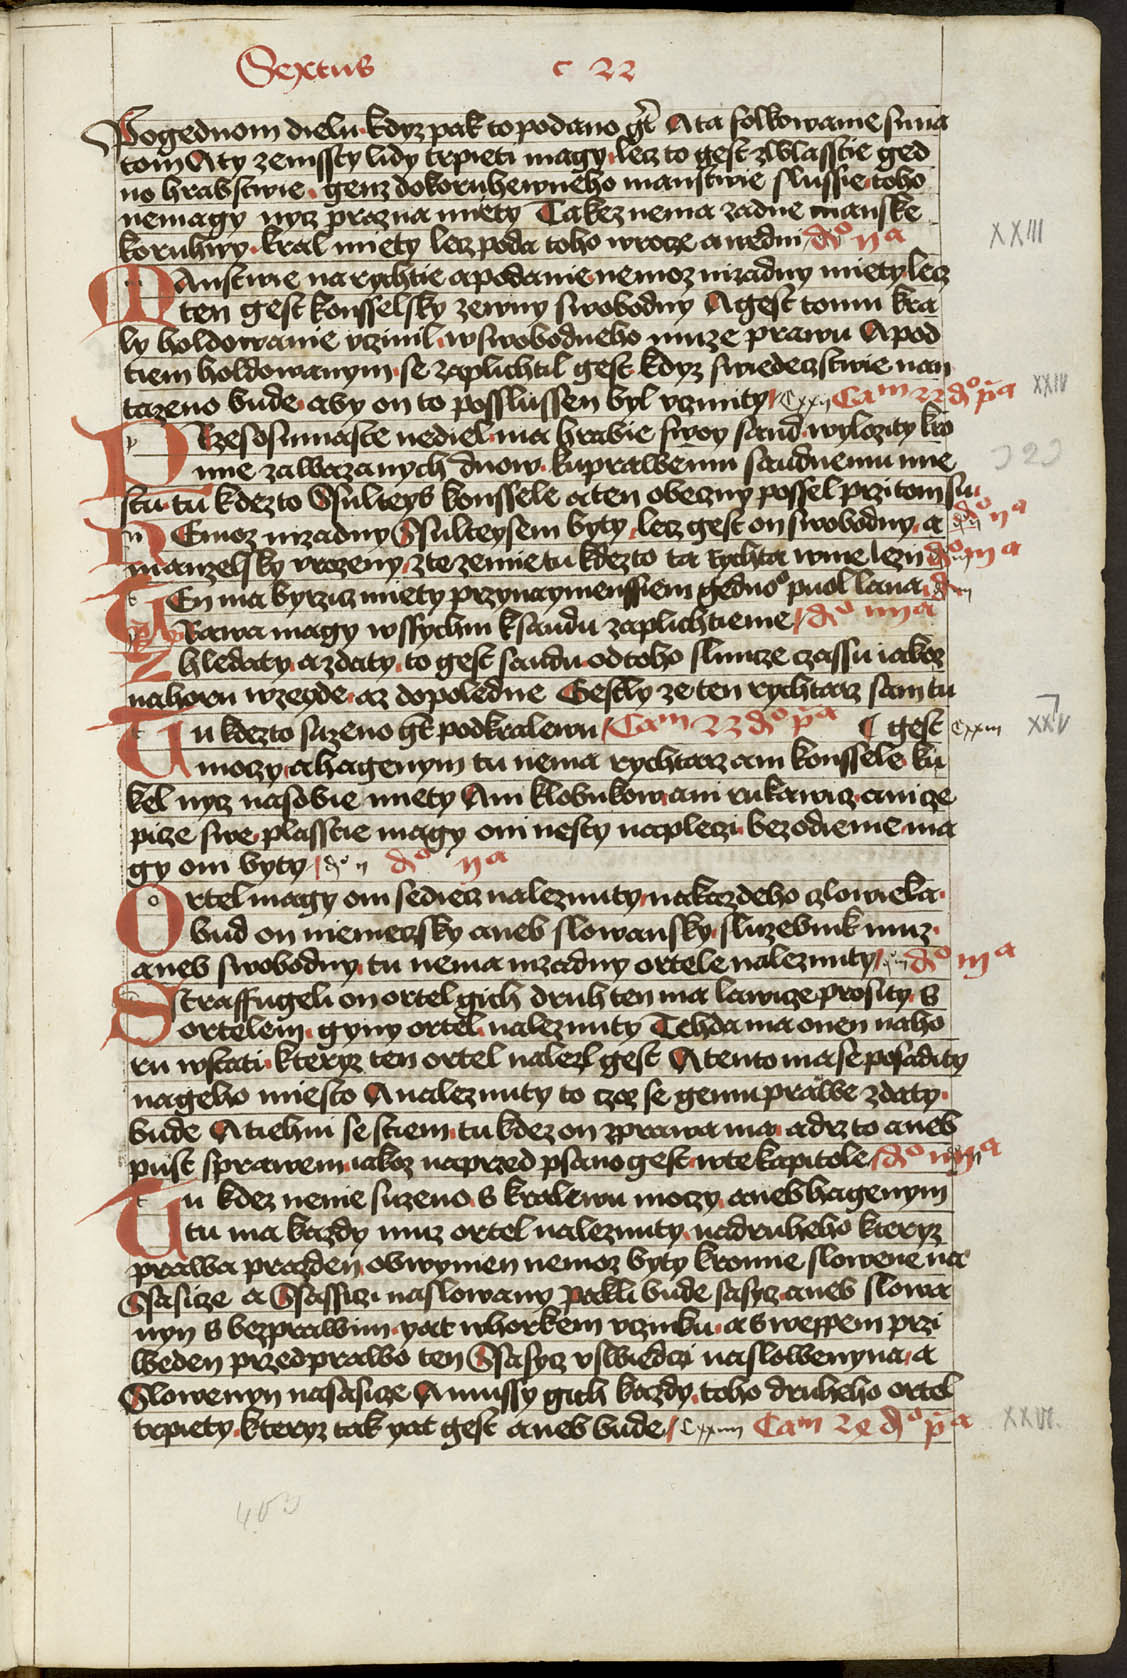 Sextus c 22
Pogednom dielu kdyz pak to podano gt A ta folkowanie su na
tom A ty zemssty lidy trpieti magy lecz to gest zwlasstie ged
no hrabstwie genz dokoruhewneho manstwie slussie toho
nemagy nycz prazna miety Takez nema zadne manske
koruhwy kral miety lecz poda toho wrocze a w edni do ii a
MAnstwie na rychtie a podanie nemoz nizadny miety lecz
ten gest konsselsky zewny swobodny A gest tomu kra
ly holdowanie vczinil w swobodneho muze prawu A pod
tiem holdowanym se zaplichtil gest kdyz swiedeczstwie nan
tazeno bude aby on to posslussen byl vczinity Cxxii Cam 22 do p a
PRzes osmnaste nediel ma hrabie swoy saud wylozity kro
mie zawazanych dnow kuprawemu saudnemu mie
stu tu kdezto Ssulteys konssele a ten obeczny possel przitom su
NEmoz nizadny Ssulteysem byty lecz gest on swobodny a do ii a
manzelsky vrozeny z te zemie tu kdezto ta rychta w nie lezi do iii a
TEn ma byrzicz miety przynaymenssiem gedno puol lana do
PRawa magy w ssychni ksaudu zaplichtieme do iiii a
Zhledaty a zdaty to gest saudu od toho slunce czassu iakoz
nahoru wzeyde az dopoledne Gestly ze ten rychtarz sam tu
Tu kdezto sazeno gt pod kralewu Cam 23 do p a gest Cxxiii
moczy a hagenym tu nema rychtarz ani konssele ku
kel nycz nasobie miety Ani klobukow ani rukawicz ani cze
picze swe plasstie magy oni nesty napleczi bez odienie ma
gy oni byty do ii do ii a
Ortel magy oni sediecz naleznuty nakazdeho czlowieka
bud on niemeczsky aneb slowansky sluzebnik muz
aneb swobodny tu nema nizadny ortele naleznuty do iii a
Straffugeli on ortel gich druh ten ma lawicze prosity s
ortelem gyny ortel naleznuty Tehda ma onen naho
ru wstati kteryz ten ortel nalezl gest A tento ma se posadity
nageho miesto A naleznuty to czoz se gemu prawe zdaty
bude A tiehni se stiem tu kdez on zprawa ma a drz to aneb
pust sprawem iakoz naprzed psano gest w te kapitole do iiii a
Tu kdez nenie suzeno s kralewu moczy aneb hagenym
tu ma kazdy muz ortel naleznuty nadruheho kteryz
prawa prazden obwynien nemoz byty kromie slowene na
Ssasicze a Ssassiczi naslowany Pakli bude sasycz aneb slowa
nyn s bezprawim yat w horkem vczinku a s weppem przi
weden przed prawo ten Ssasycz vswiedczi naslowenyna a
Slowenyn nasasicze A mussy gich kazdy toho druheho ortel
trpiety kteryz tak yat gest aneb bude Cxxiiii Cam 24 do p a
XXIII
XXIV
XXV
XXVI.